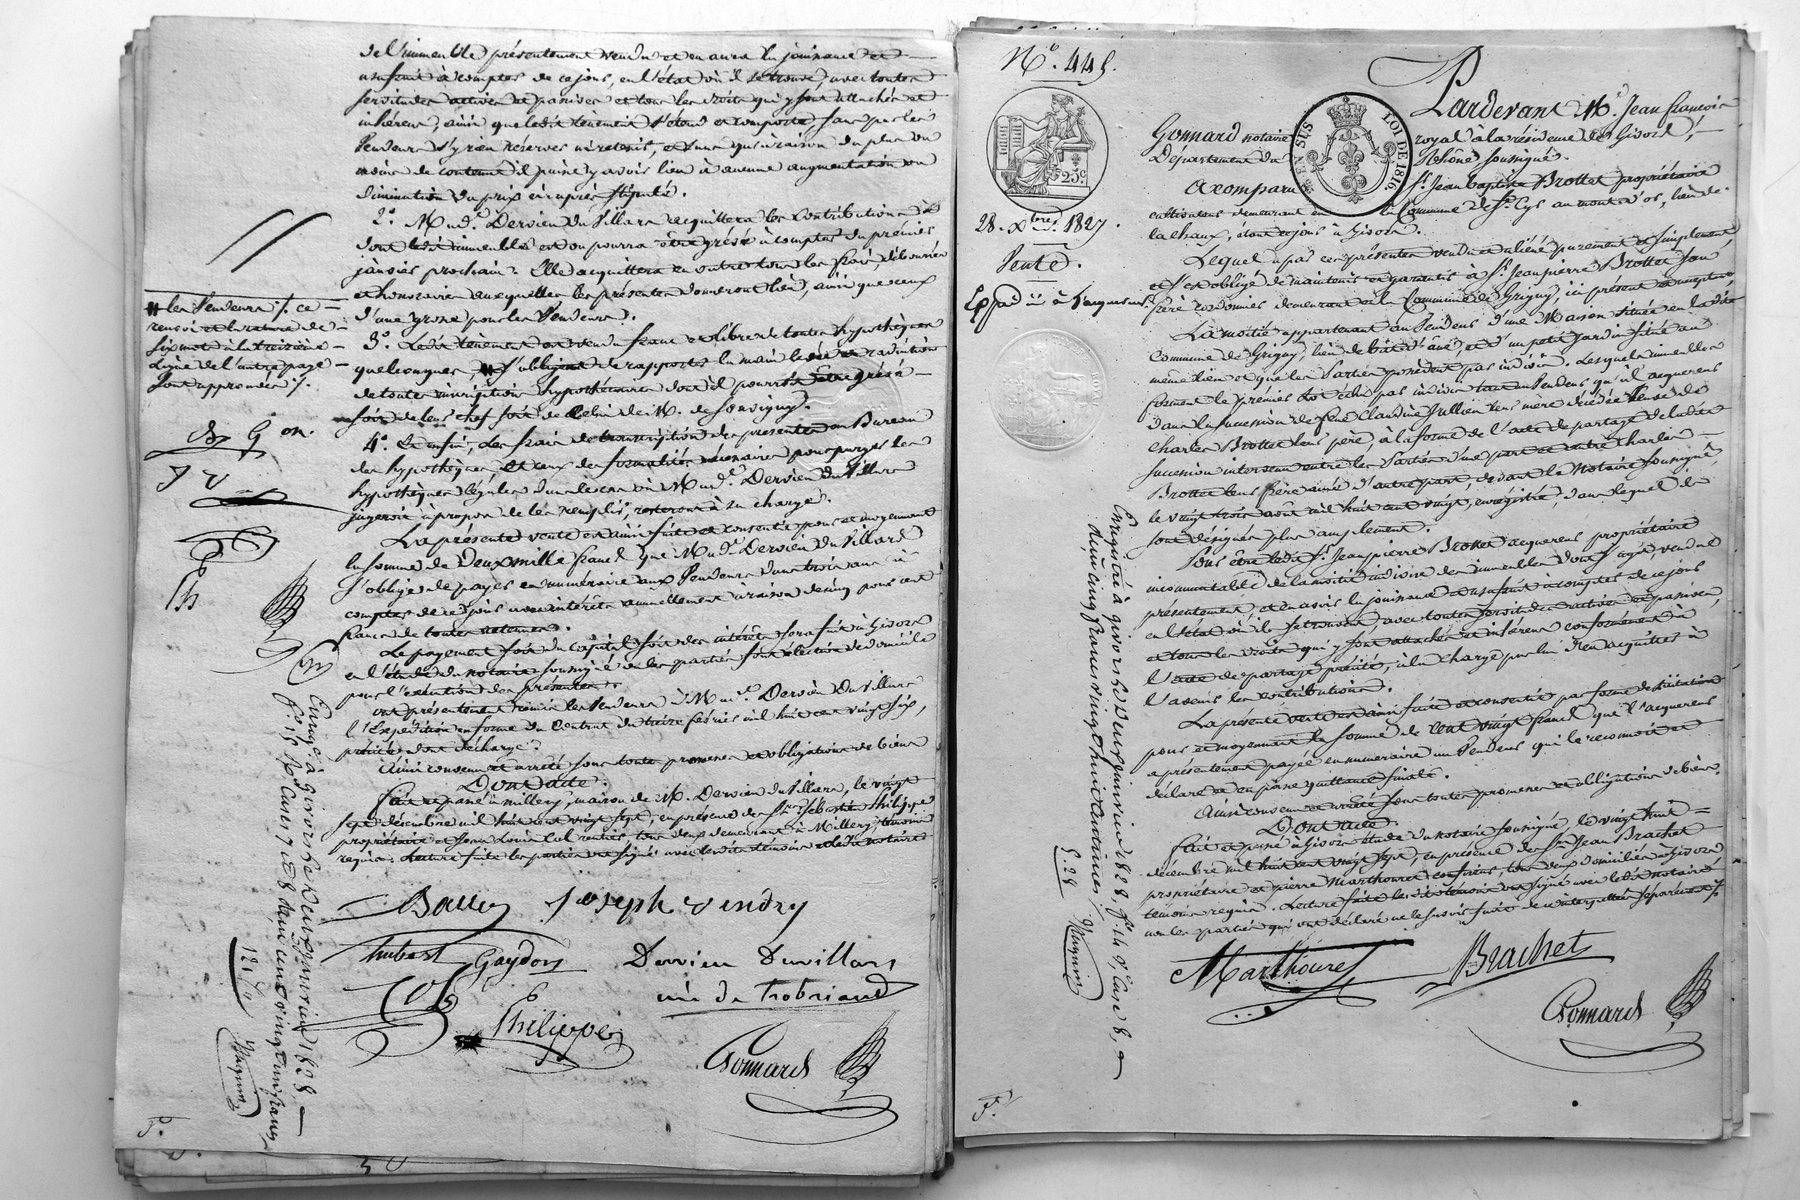 de l'immeuble présentement vendu et en avoir la jouissance et
usufruit à compter de ce jour, en l'état où il se trouve, avec toutes
servitudes actives et passives et tous les droits qui y sont attachés et
inhérens, ainsi que ledit tenement s'étend et comporte sans par les
Vendeurs s'y rien réserver ni retenir, et sans qu'à raison du plus ou
moins de contenue il puisse y avoir lieu à aucune augmentation ou
diminution du prix ci-après stipulé.
2.° M. d.e Dervieu du Villars acquittera les contributions
dont ledit immeuble est ou pourra être grévé à compter du premier
janvier prochain. Elle acquittera en outre tous les frais, débourrés
et honoraires auxquelles les présentes donneront lieu, ainsi que ceux
d'une grosse pour les Vendeurs.
3.° Ledit tenement est vendu franc et libre de toutes hypothèques
quelconques, s'obligent de rapporter la main levée et radiation
de toutes inscriptions hypothécaires dont il pourroit être grévé
soit de leur chef soit de celui de M. de Souvigny.
4.° Et enfin, les frais de transcription des présentes au Bureau
des hypothèques, et ceux des formalités nécessaires pour purger les
hypothèques légales dans le cas où M. d.e Dervieu du Villars
jugeroit à propos de les remplir, resteront à sa charge.
La présente vente est ainsi faite et consentie pour et moyennant
la somme de Deux mille francs que M. d.e Dervieu du Villars
s'oblige de payer en numéraire aux Vendeurs dans trois ans à
compter de ce jour avec intérêts annuellement à raison de cinq pour cent
francs de toutes retenues.
Le payement soit du capital soit des intérêts sera fait à Givors
en l'étude du notaire soussigné où les parties font élection de domicile
pour l'exécution des présentes.
Ont présentement remis les Vendeurs à M. d.e Dervieu Du Villars
l'Expédition en forme du Contrat du treize février mil huit cent vingt six,
précité, dont décharge.
Ainsi convenu et arrêté sous toutes promesses et obligations de biens
Dont acte.
Fait et passé à Millery, maison de M. Dervieu du Villars, le vingt
sept décembre mil huit cent vingt sept, en présence de Srs Sébastien Philippe
propriétaire et Jean Louis Col rentier tous deux demeurant à Millery, témoins
requis. Lecture faite les parties ont signé avec lesdits témoins et ledit notaire
les Vendeurs /. ce
renvoi et la rature de
six mots à la treizième
ligne de l'autre page
sont approuvés /.
Balley Joseph Vendry
hubert Gaydon Dervieu Duvillars
Col née de Trobriand
Philippe
Gonnard
Enreg.é à Givors le deux janvier 1828
Reçu cent vingt un francs
N.° 445.
28. Xbre 1827.
Vente.
Exp.
25.c
LOI DE 1816
Pardevant M.e Jean françois
Gonnard notaire royal à la résidence de Givors,
Département du Rhône soussigné.
A comparu S.r Jean baptiste Brottet propriétaire
cultivateur demeurant en la Commune de S.t Cyr au mont d'or, lieu de
la chaux, étant ce jour à Givors.
Lequel a par ces présentes vendu et aliéné purement et simplement
et s'est obligé de maintenir et garantir à S.r Jean pierre Brottet son
frère cordonnier demeurant en la Commune de Grigny, ici présent et acceptant,
La moitié appartenant au Vendeur d'une Maison située en ladite
commune de Grigny, lieu de et d'un petit jardin situé au
même lieu et que les Parties possèdent par indivis. Lesquels immeubles
forment le premier lot échu par indivis tant au Vendeur qu'à l'acquereur
dans la succession de feue Claudine Jullien leur mère décédée Veuve de
Charles Brottet leur père, à la forme de l'acte de partage de ladite
succession intervenu entre les Parties d'une part et entre Charles
Brottet leur frère ainé d'autre part, devant le Notaire soussigné,
le vingt trois août mil huit cent vingt, enregistré, dans lequel ils
sont désignés plus amplement.
Pour être ledit S.r Jean pierre Brottet acquereur propriétaire
incommutable de la moitié indivise des immeubles dont s'agit vendus
présentement, et en avoir la jouissance et usufruit à compter de ce jour
en l'état où ils se trouvent avec toutes servitudes actives et passives,
et tous les droits qui y sont attachés et inhérens conformément à
l'acte de partage précité, à la charge par lui d'en acquitter à
l'avenir les contributions.
La présente vente est ainsi faite et consentie par forme de licitation
pour et moyennant la somme de Cent vingt francs que l'acquereur
a présentement payée en numéraire au Vendeur qui le reconnoit et
déclare et en passe quittance finale.
Ainsi convenu et arrêté sous toutes promesses et obligations de biens.
Dont acte.
Fait et passé à Givors étude du notaire soussigné, le vingt huit
décembre mil huit cent vingt sept, en présence de Srs Jean Brachet
propriétaire et pierre Marthouret tous deux domiciliés à Givors
témoins requis. Lecture faite lesdits témoins ont signé avec ledit notaire
non les parties qui ont déclaré ne le savoir faire de ce interpellées séparément /.
Marthouret Brachet
Gonnard
Enregistré à givors le deux janvier 1828, f.o 14 v.o, case 8,
reçu cinq francs vingt huit centimes
5.28